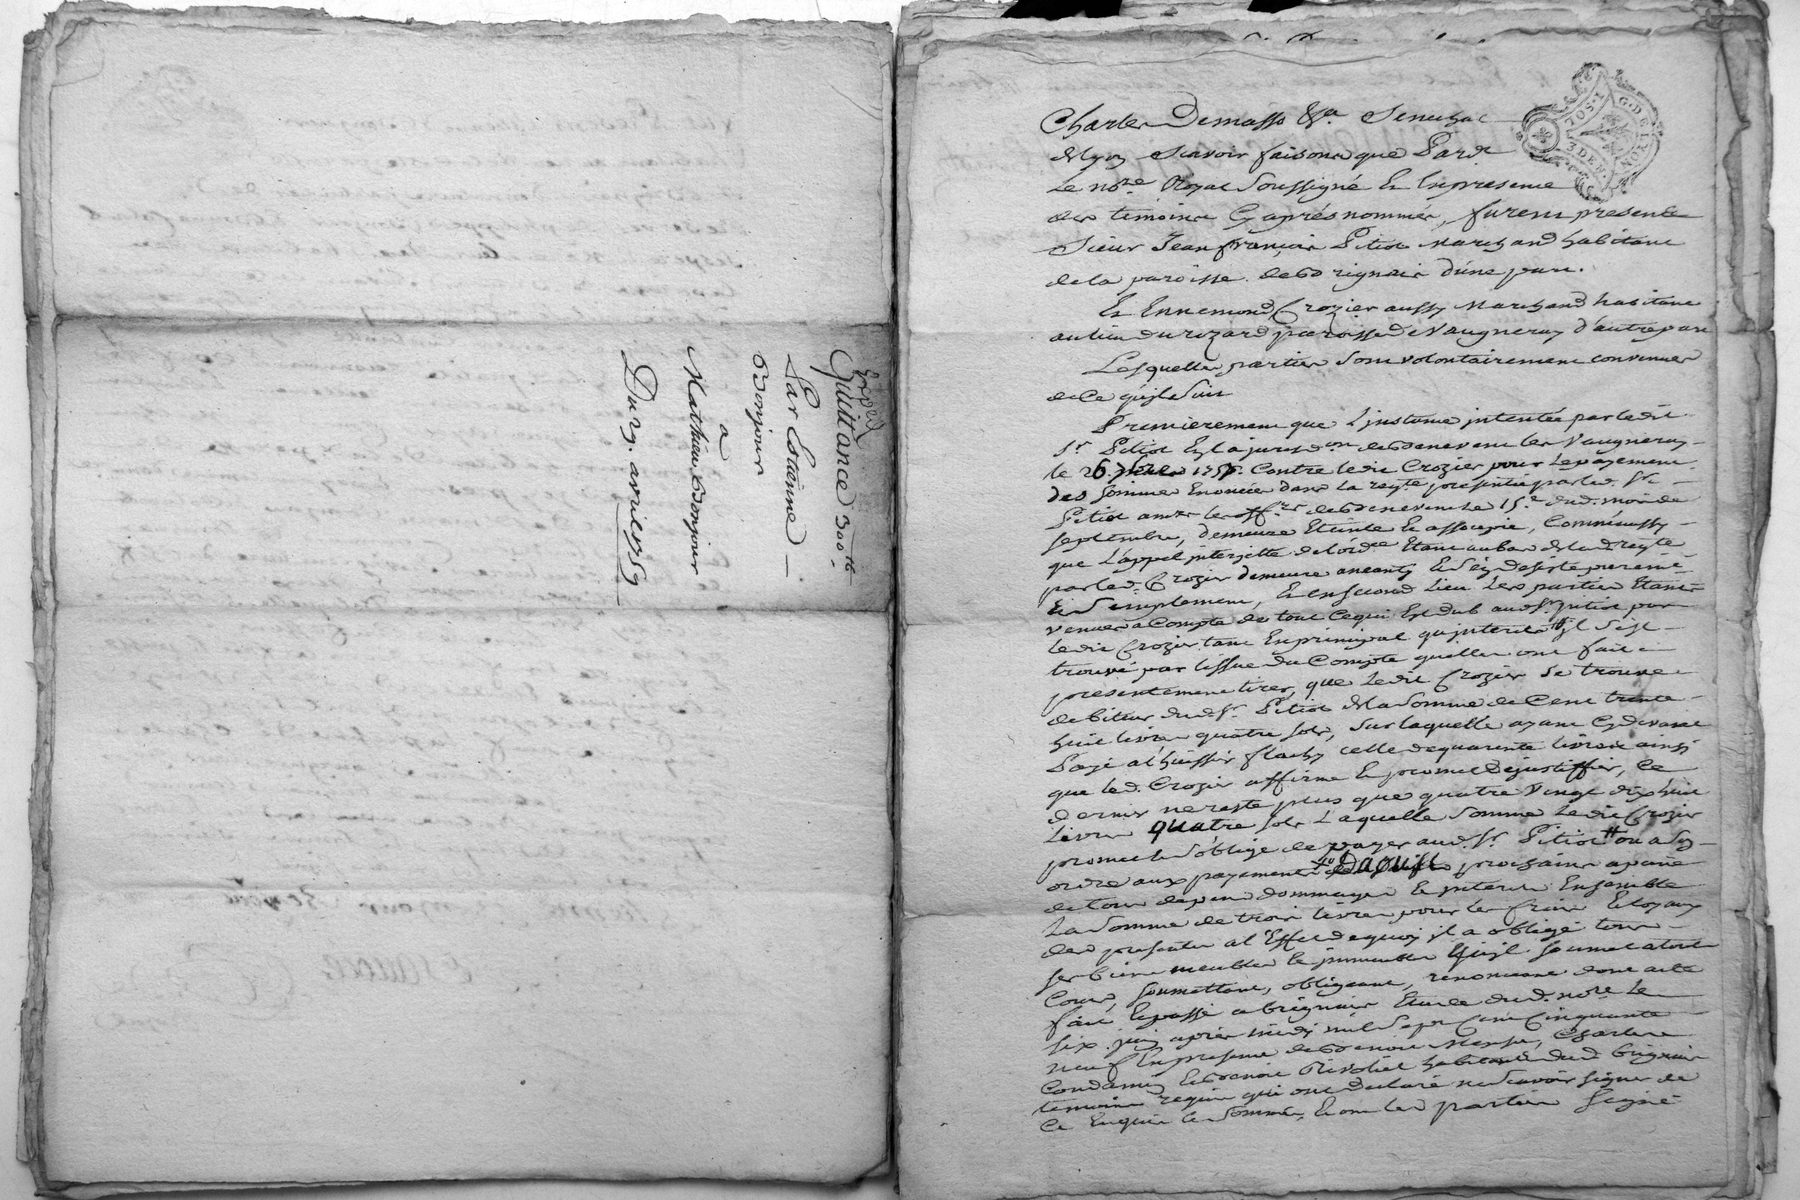 Expédié
Quittance 300 tt
Par Estienne
Bonjour
a
Mathieu Bonjour
Du 29. avril 1759
G. DE LYON
3 DEN.
Charles Demasso &a Senechal
de Lyon Scavoir faisons que Pard.t
Le no.re Royal Soussigné & En presence
des témoins Cy aprés nommés, furent presents
Sieur Jean françois Pitiot Marchand habitant
de la paroisse de Brignais d'une part.
Et Ennemond Crozier aussy Marchand habitant
au lieu du rozard paroisse de Vaugneray d'autre part
Lesquelles parties Sont volontairement convenues
de Ce qui Suit
Premierement que L'instance intentée par le dit
S.r Pitiot En la jurisd.on de Benevent les Vaugneray
le 26 7bre 1758. Contre le dit Crozier pour Le payement
des Sommes Enoncées dans La req.te presentée par led. S.r
Pitiot aux off.rs de Benevent le 15.e dud. mois de
Septembre, demeure Eteinte & assoupie, Comme aussy
que L'appel interjetté de l'ord.ce Etant au bas de lad. req.te
par led. Crozier demeure aneanty & S'en desiste purem.t
& Simplement, Et En Second Lieu Les parties Etant
venues a Compte de tout Ce qui Est dub aud. S.r Pitiot par
Le dit Crozier tant En principal qu'interets il S'est
trouvé par l'issue du Compte qu'elles ont fait
presentement tirer, que Le dit Crozier Se trouve
debiteur dud. S.r Pitiot de La Somme de Cent trente
huit livres quatre sols, Sur laquelle ayant Cy devant
Payé a l'huissier flachy celle de quarente livres ainsi
que led. Crozier affirme & promet de justiffier, Ce
dernier ne reste plus que quatre Vingt dix huit
Livres quatre sols Laquelle Somme Le dit Crozier
promet & S'oblige de payer aud. S.r Pitiot ou a Son
ordre aux payements Daoust prochain a peine
de tous depens dommages & interets Ensemble
La Somme de trois livres pour les frais & loyaux
des presentes a l'Effet de quoy il a obligé tous
ses biens meubles & immeubles qu'il Soumet a toutes
Cours, Soumettant, obligeant, renonçant dont acte
fait & passé a Brignais Etude dud. no.re Le
Six juin aprés midy mil Sept Cent Cinquante
neuf En presence de Benoit, Charles
Condamin & Benoit Rivoliet habitants dud. Brignais
témoins requis qui ont declaré ne Scavoir Signer de
Ce Enquis & Sommés, & ont les parties Signé